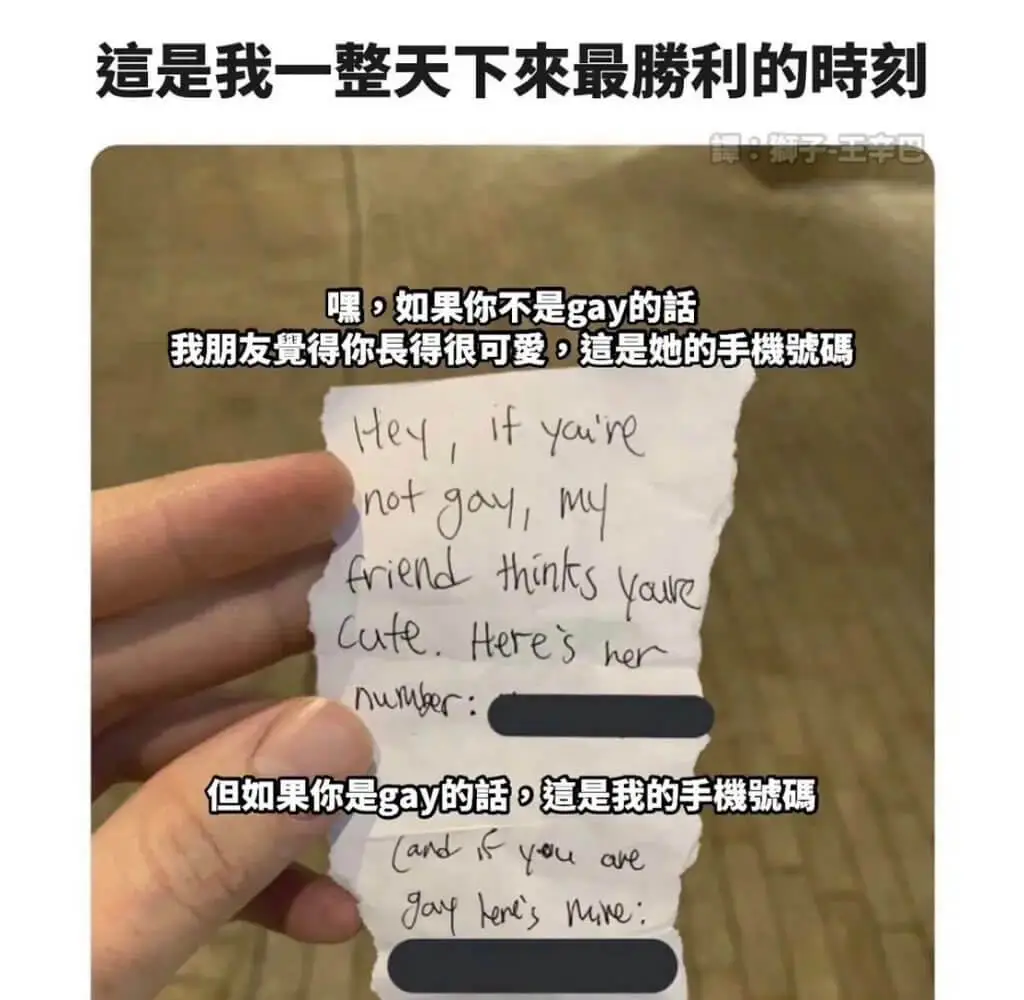 這是我一整天下來最勝利的時刻
譯：獅子-王辛巴
嘿，如果你不是gay的話
我朋友覺得你長得很可愛，這是她的手機號碼
Hey, if you're
not gay, my
friend thinks you're
cute. Here's her
number:
但如果你是gay的話，這是我的手機號碼
(and if you are
gay here's mine: